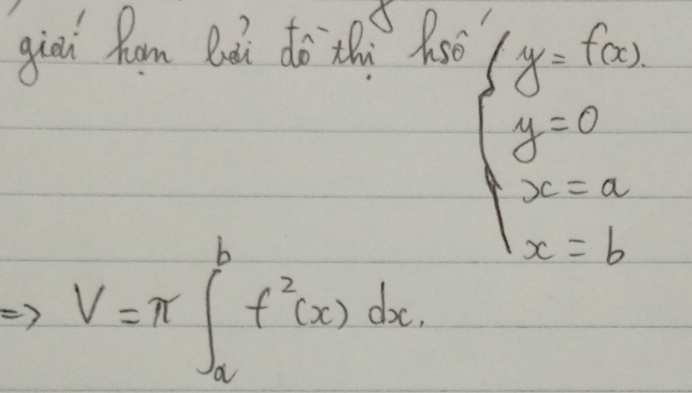 giới hạn bởi đồ thị hsố { y = f(x).
y = 0
x = a
x = b
=> V = π ∫_a^b f²(x) dx.